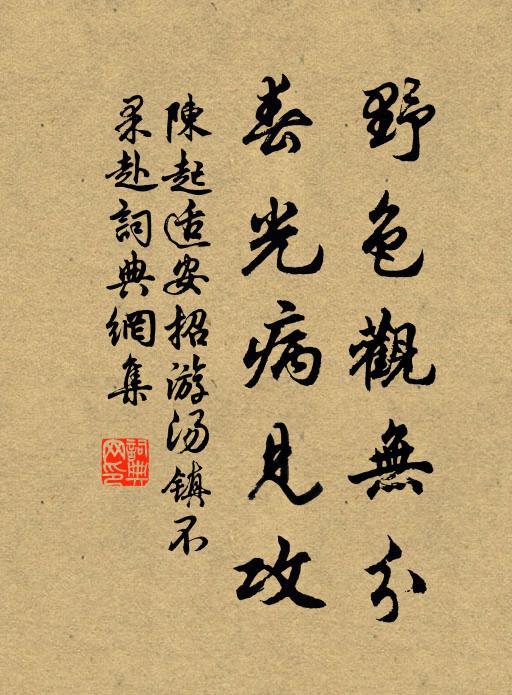 野色觀無分
春光病見攻
陳起适安招游汤鎮不
果赴詞典網集
詞典网印